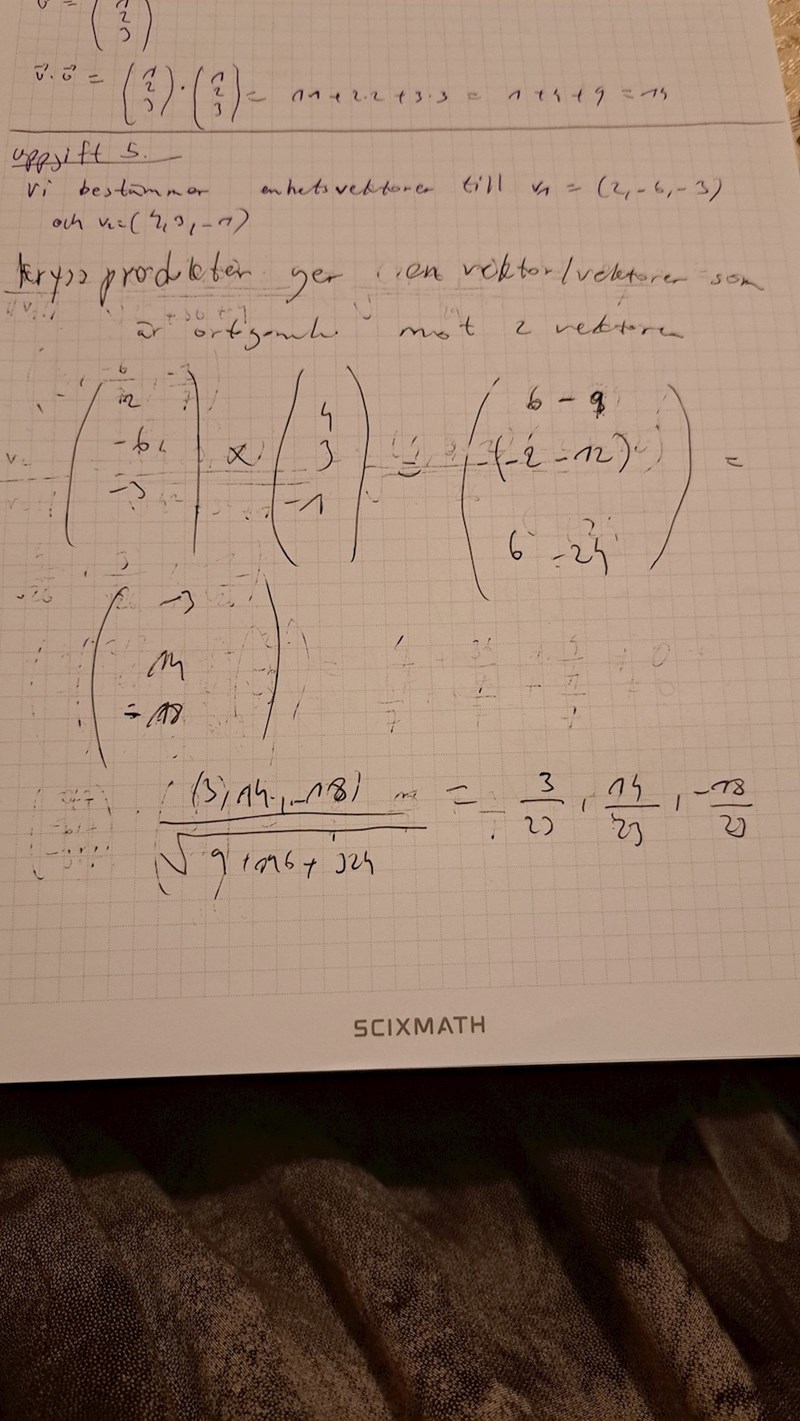 (1 2 3)
v⃗·v⃗ = (1 2 3) · (1 2 3) = 1·1 + 2·2 + 3·3 = 1+4+9 = 14
uppgift 5.
Vi bestämmer enhetsvektorer till v1 = (2, -6, -3)
och v2=(4,3,-1)
kryss produkten ger en vektor/vektorer som
är mot 2 vektorer
(2 -6 -3) × (4 3 -1) = (6 - 9 -(-2 -12) 6 -24) =
(-3 14 -18)
(3, 14, -18) / √9+196+324 = 3/23, 14/23, -18/23
SCIXMATH